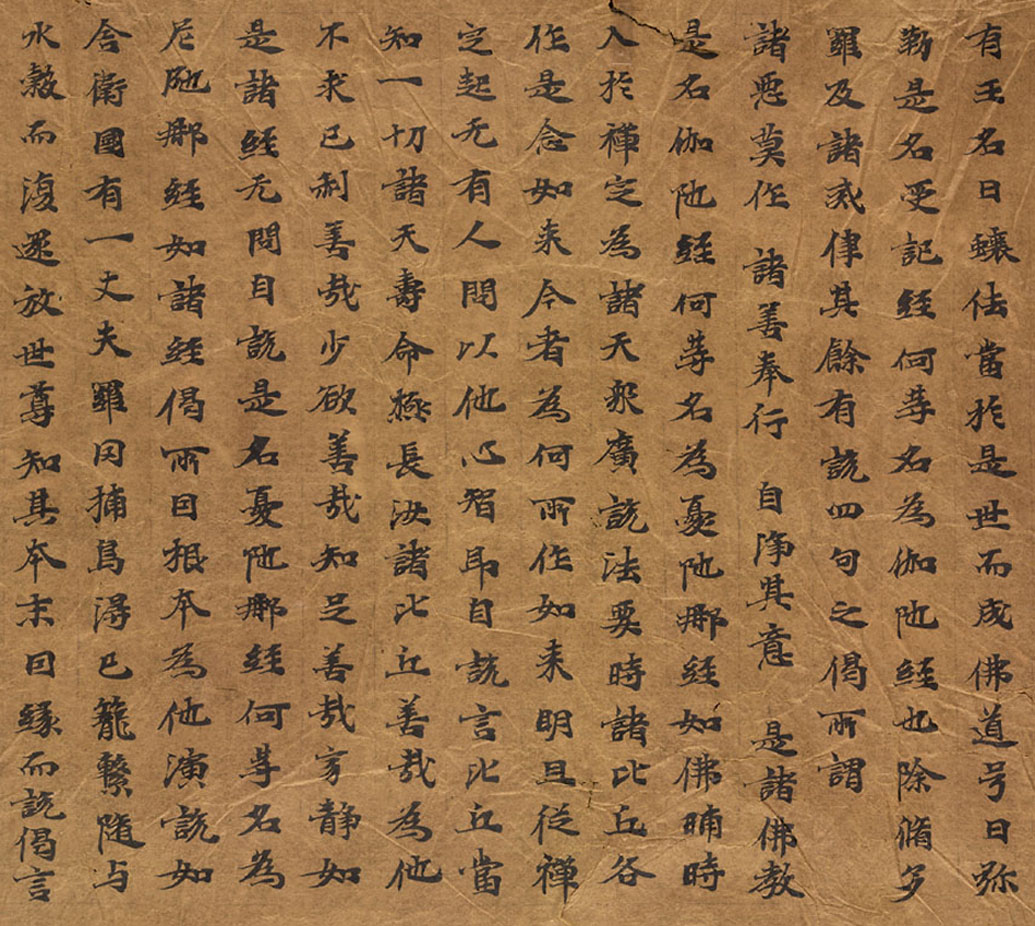 有王名曰蠰佉當於是世而成佛道号曰弥
勒是名受記經何等名為伽陁經也除脩多
羅及諸戒律其餘有說四句之偈所謂
諸惡莫作 諸善奉行 自淨其意 是諸佛教
是名伽陁經何等名為憂陁那經如佛晡時
入於禪定為諸天衆廣說法要時諸比丘各
作是念如来今者為何所作如来明旦從禪
定起无有人問以他心智即自說言比丘當
知一切諸天壽命極長汝諸比丘善哉為他
不求己利善哉少欲善哉知足善哉寂静如
是諸經无問自說是名憂陁那經何等名為
尼陁那經如諸經偈所因根本為他演說如
舍衛國有一丈夫羅网捕鳥淂已籠繫随与
水穀而復還放世尊知其本末因緣而說偈言